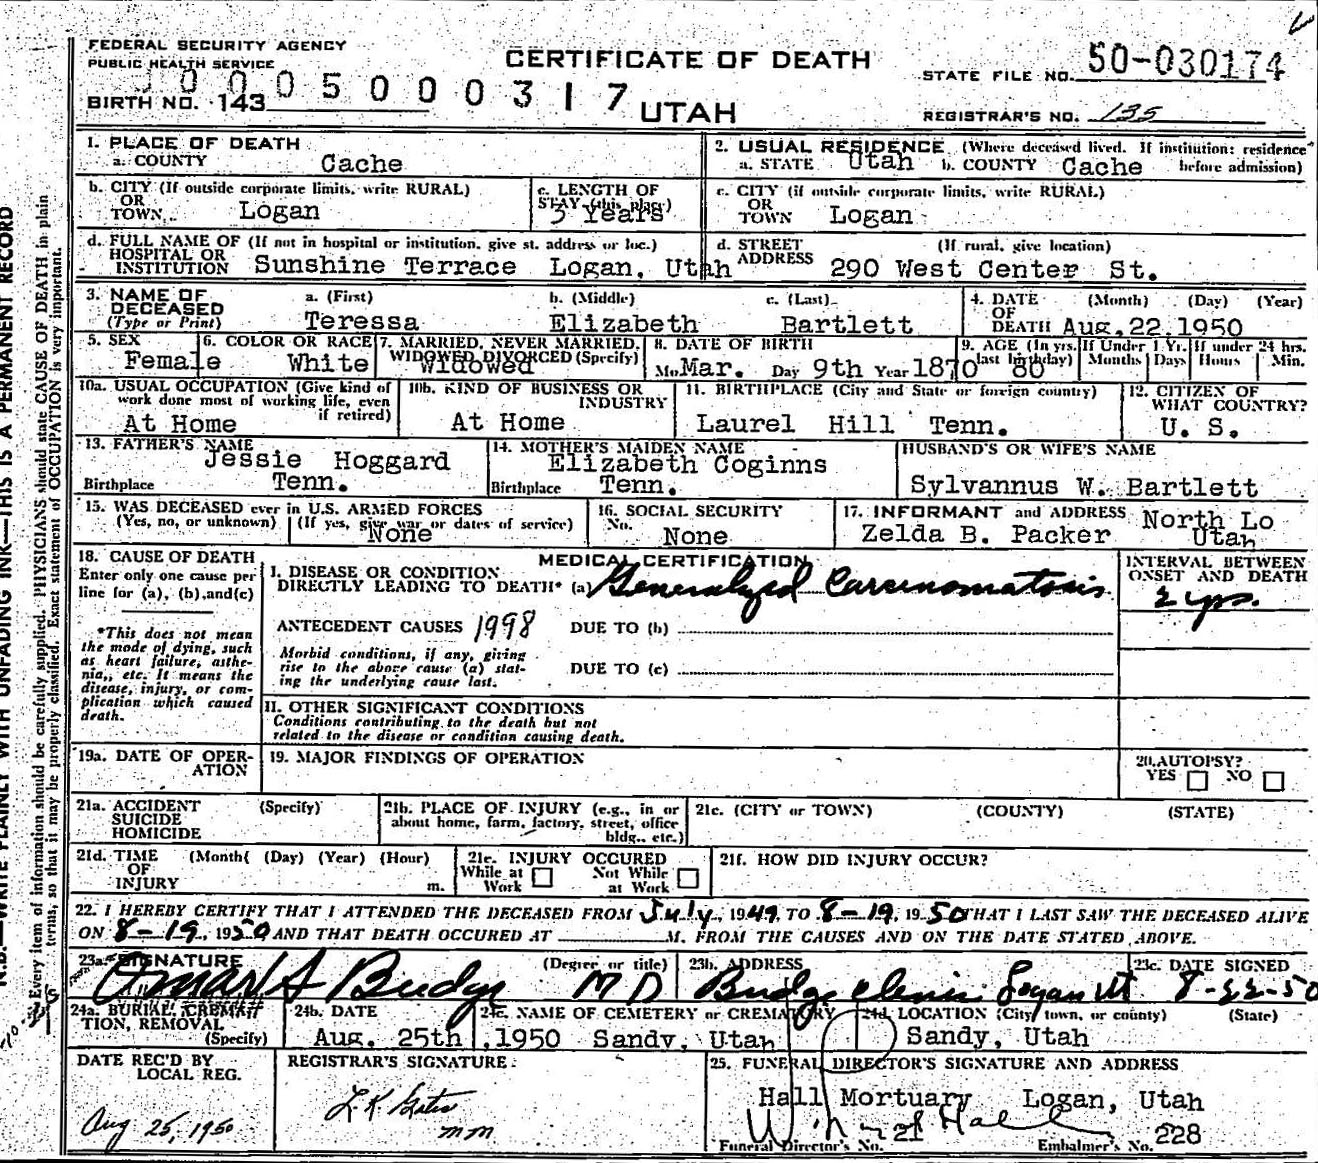 FEDERAL SECURITY AGENCY
PUBLIC HEALTH SERVICE
CERTIFICATE OF DEATH
STATE FILE NO. 50-030174
0005000317
BIRTH NO. 143
UTAH
REGISTRAR'S NO. 135
1. PLACE OF DEATH
a. COUNTY Cache
2. USUAL RESIDENCE (Where deceased lived. If institution: residence before admission)
a. STATE Utah b. COUNTY Cache
b. CITY (If outside corporate limits, write RURAL)
OR
TOWN Logan
c. LENGTH OF
STAY (this place)
3 Years
c. CITY (if outside corporate limits, write RURAL)
OR
TOWN Logan
d. FULL NAME OF (If not in hospital or institution, give st. address or loc.)
HOSPITAL OR
INSTITUTION Sunshine Terrace Logan, Utah
d. STREET (If rural, give location)
ADDRESS 290 West Center St.
3. NAME OF DECEASED
(Type or Print)
a. (First) b. (Middle) c. (Last)
Teressa Elizabeth Bartlett
4. DATE (Month) (Day) (Year)
OF
DEATH Aug. 22, 1950
5. SEX
Female
6. COLOR OR RACE
White
7. MARRIED, NEVER MARRIED,
WIDOWED DIVORCED (Specify)
Widowed
8. DATE OF BIRTH
Mo. Mar. Day 9th Year 1870
9. AGE (In yrs. last birthday) If Under 1 Yr. If under 24 hrs.
80 Months Days Hours Min.
10a. USUAL OCCUPATION (Give kind of
work done most of working life, even
if retired)
At Home
10b. KIND OF BUSINESS OR
INDUSTRY
At Home
11. BIRTHPLACE (City and State or foreign country)
Laurel Hill Tenn.
12. CITIZEN OF
WHAT COUNTRY?
U. S.
13. FATHER'S NAME
Jessie Hoggard
Birthplace Tenn.
14. MOTHER'S MAIDEN NAME
Elizabeth Coginns
Birthplace Tenn.
HUSBAND'S OR WIFE'S NAME
Sylvannus W. Bartlett
15. WAS DECEASED ever in U.S. ARMED FORCES
(Yes, no, or unknown) (If yes, give war or dates of service)
None
16. SOCIAL SECURITY
No.
None
17. INFORMANT and ADDRESS North Lo
Zelda B. Packer Utah
18. CAUSE OF DEATH
Enter only one cause per
line for (a), (b), and (c)
*This does not mean
the mode of dying, such
as heart failure, asthe-
nia, etc. It means the
disease, injury, or com-
plication which caused
death.
MEDICAL CERTIFICATION
I. DISEASE OR CONDITION
DIRECTLY LEADING TO DEATH* (a) Generalized Carcinomatosis
ANTECEDENT CAUSES 1998 DUE TO (b)
Morbid conditions, if any, giving
rise to the above cause (a) stat-
ing the underlying cause last.
DUE TO (c)
INTERVAL BETWEEN
ONSET AND DEATH
2 yrs.
II. OTHER SIGNIFICANT CONDITIONS
Conditions contributing to the death but not
related to the disease or condition causing death.
19a. DATE OF OPER-
ATION
19. MAJOR FINDINGS OF OPERATION
20. AUTOPSY?
YES NO
21a. ACCIDENT (Specify)
SUICIDE
HOMICIDE
21b. PLACE OF INJURY (e.g., in or
about home, farm, factory, street, office
bldg., etc.)
21c. (CITY or TOWN) (COUNTY) (STATE)
21d. TIME (Month( (Day) (Year) (Hour)
OF
INJURY m.
21e. INJURY OCCURED
While at Work Not While at Work
21f. HOW DID INJURY OCCUR?
22. I HEREBY CERTIFY THAT I ATTENDED THE DECEASED FROM July, 1949, TO 8-19, 1950 THAT I LAST SAW THE DECEASED ALIVE
ON 8-19, 1950 AND THAT DEATH OCCURED AT M. FROM THE CAUSES AND ON THE DATE STATED ABOVE.
23a. SIGNATURE (Degree or title)
Omar S Budge M D
23b. ADDRESS
Budge Clinic Logan Ut
23c. DATE SIGNED
8-22-50
24a. BURIAL, CREMA-
TION, REMOVAL
(Specify)
24b. DATE
Aug. 25th, 1950
24c. NAME OF CEMETERY or CREMATORY
Sandy, Utah
24d. LOCATION (City, town, or county) (State)
Sandy, Utah
DATE REC'D BY
LOCAL REG.
Aug 25, 1950
REGISTRAR'S SIGNATURE
mm
25. FUNERAL DIRECTOR'S SIGNATURE AND ADDRESS
Hall Mortuary Logan, Utah
Hall
Funeral Director's No. 21 Embalmer's No. 228
N.B.—WRITE PLAINLY WITH UNFADING INK—THIS IS A PERMANENT RECORD
Every item of information should be carefully supplied. PHYSICIANS should state CAUSE OF DEATH in plain
terms, so that it may be properly classified. Exact statement of OCCUPATION is very important.